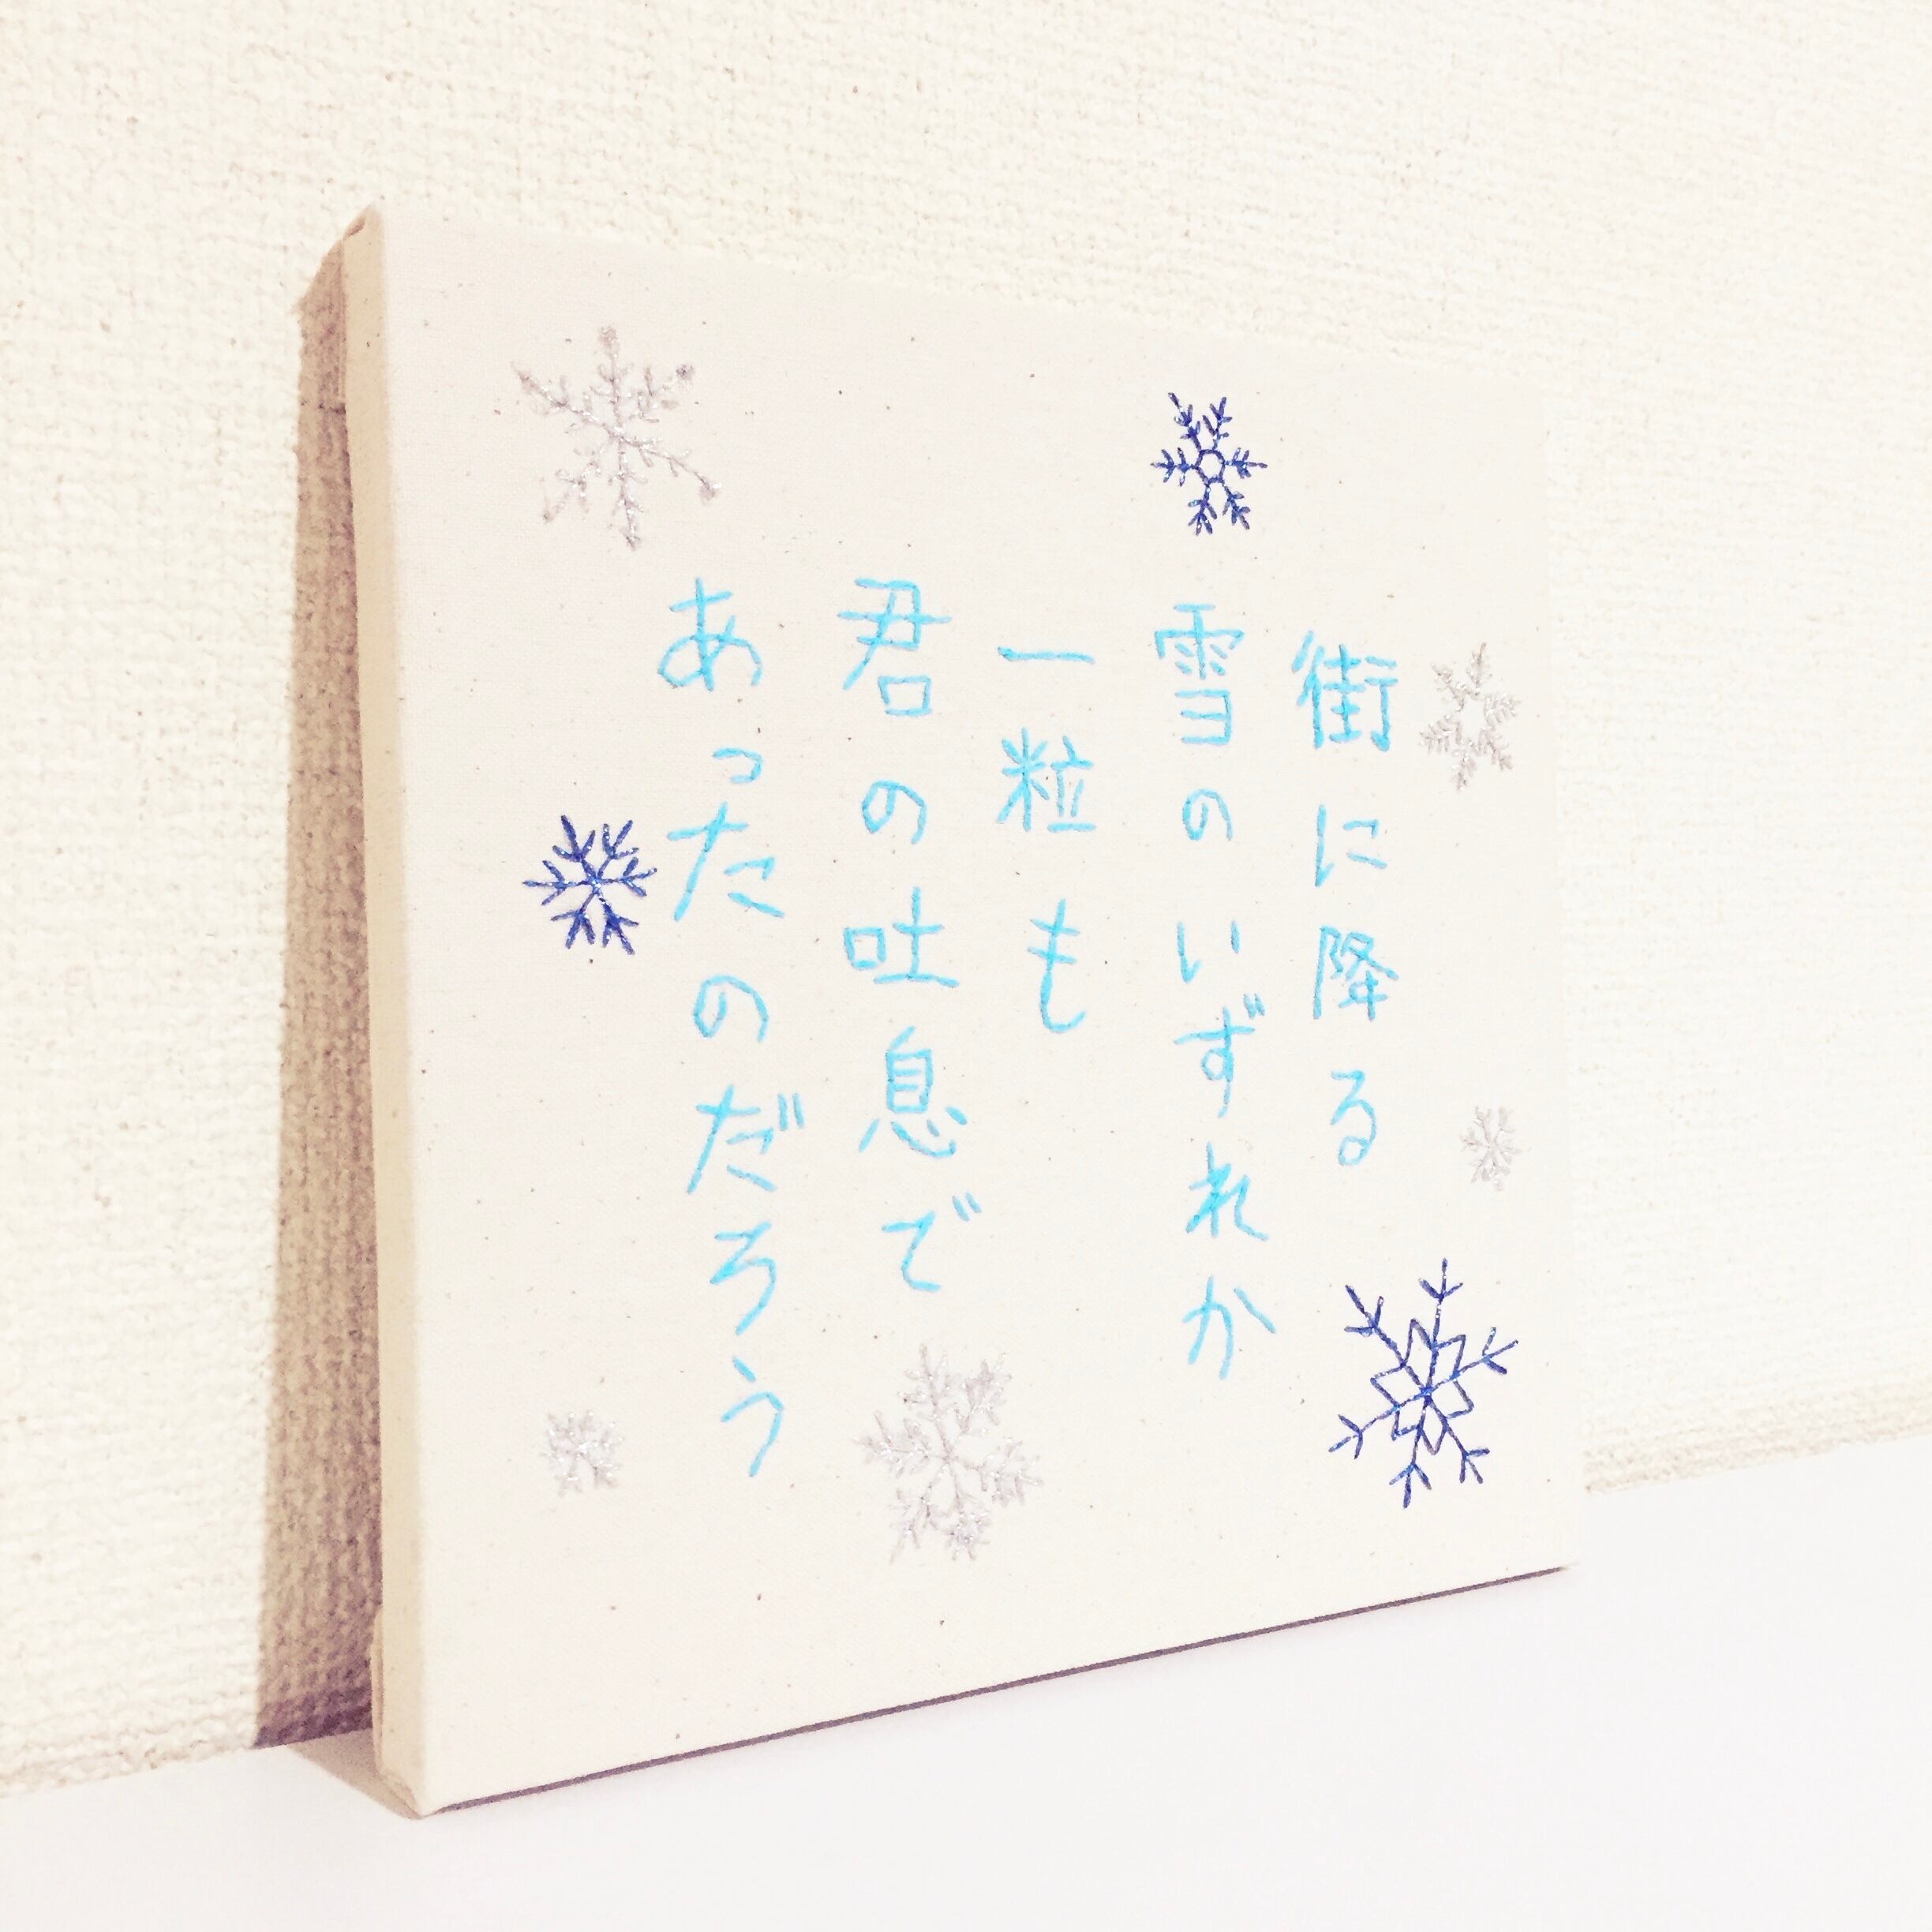 街に降る
雪のいずれか
一粒も
君の吐息で
あったのだろう